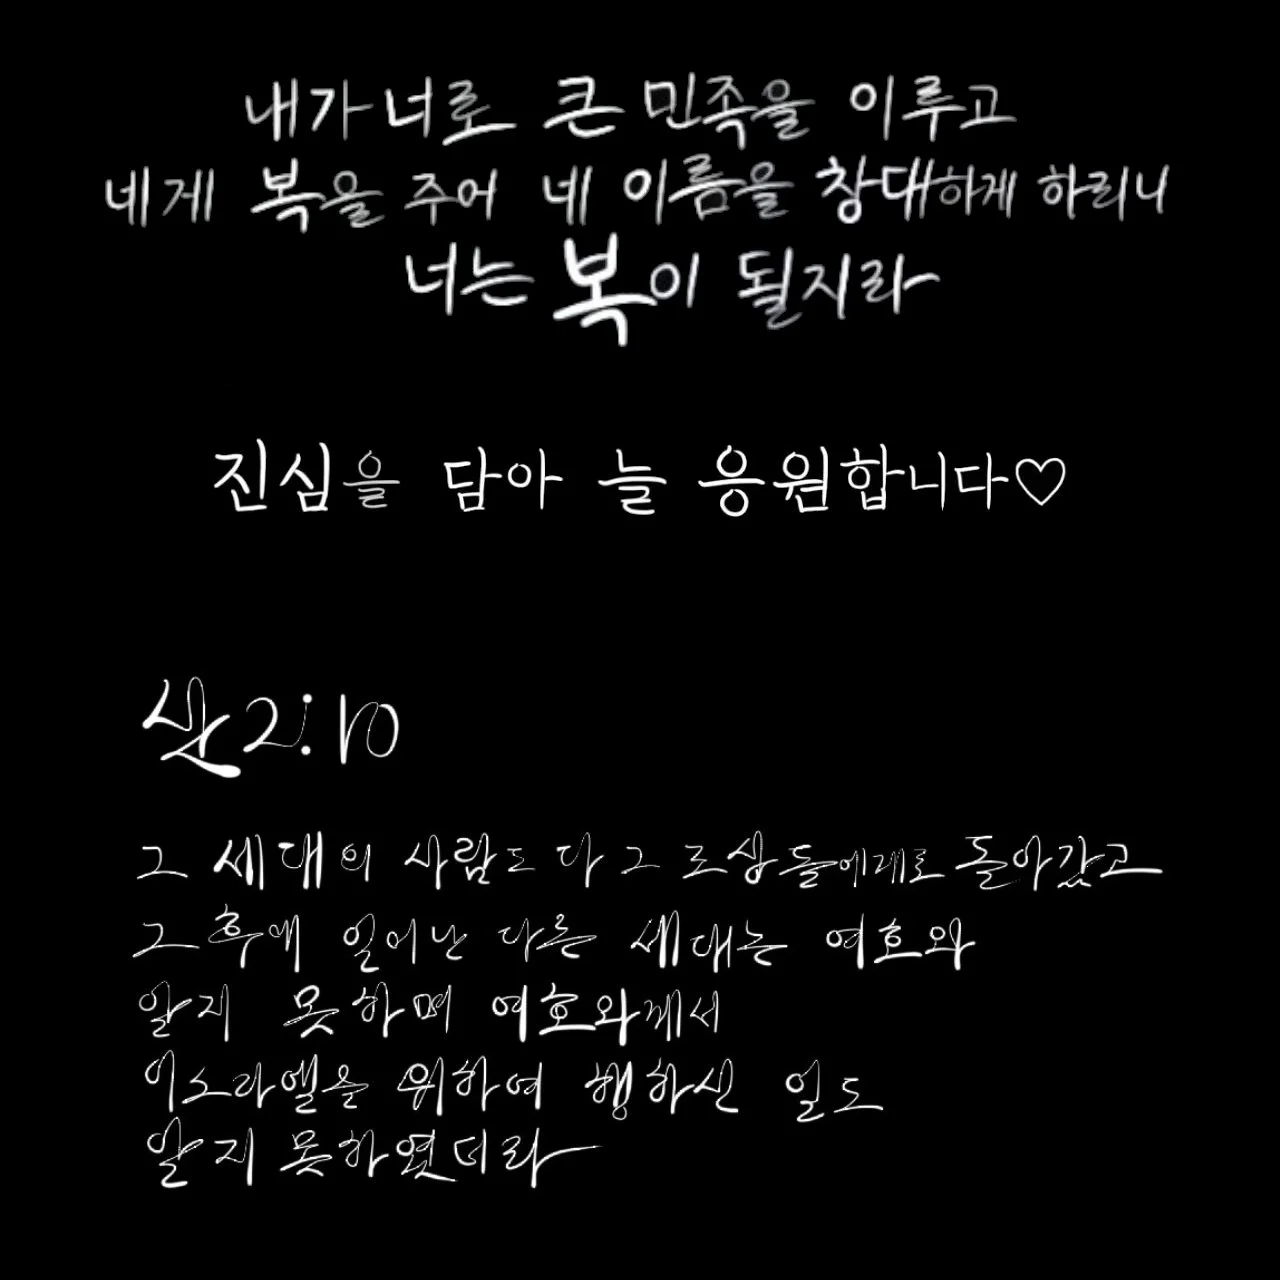 내가 너로 큰 민족을 이루고
네게 복을 주어 네 이름을 창대하게 하리니
너는 복이 될지라
진심을 담아 늘 응원합니다♡
삿2:10
그 세대의 사람도 다 그 조상들에게로 돌아갔고
그 후에 일어난 다른 세대는 여호와
알지 못하며 여호와께서
이스라엘을 위하여 행하신 일도
알지 못하였더라